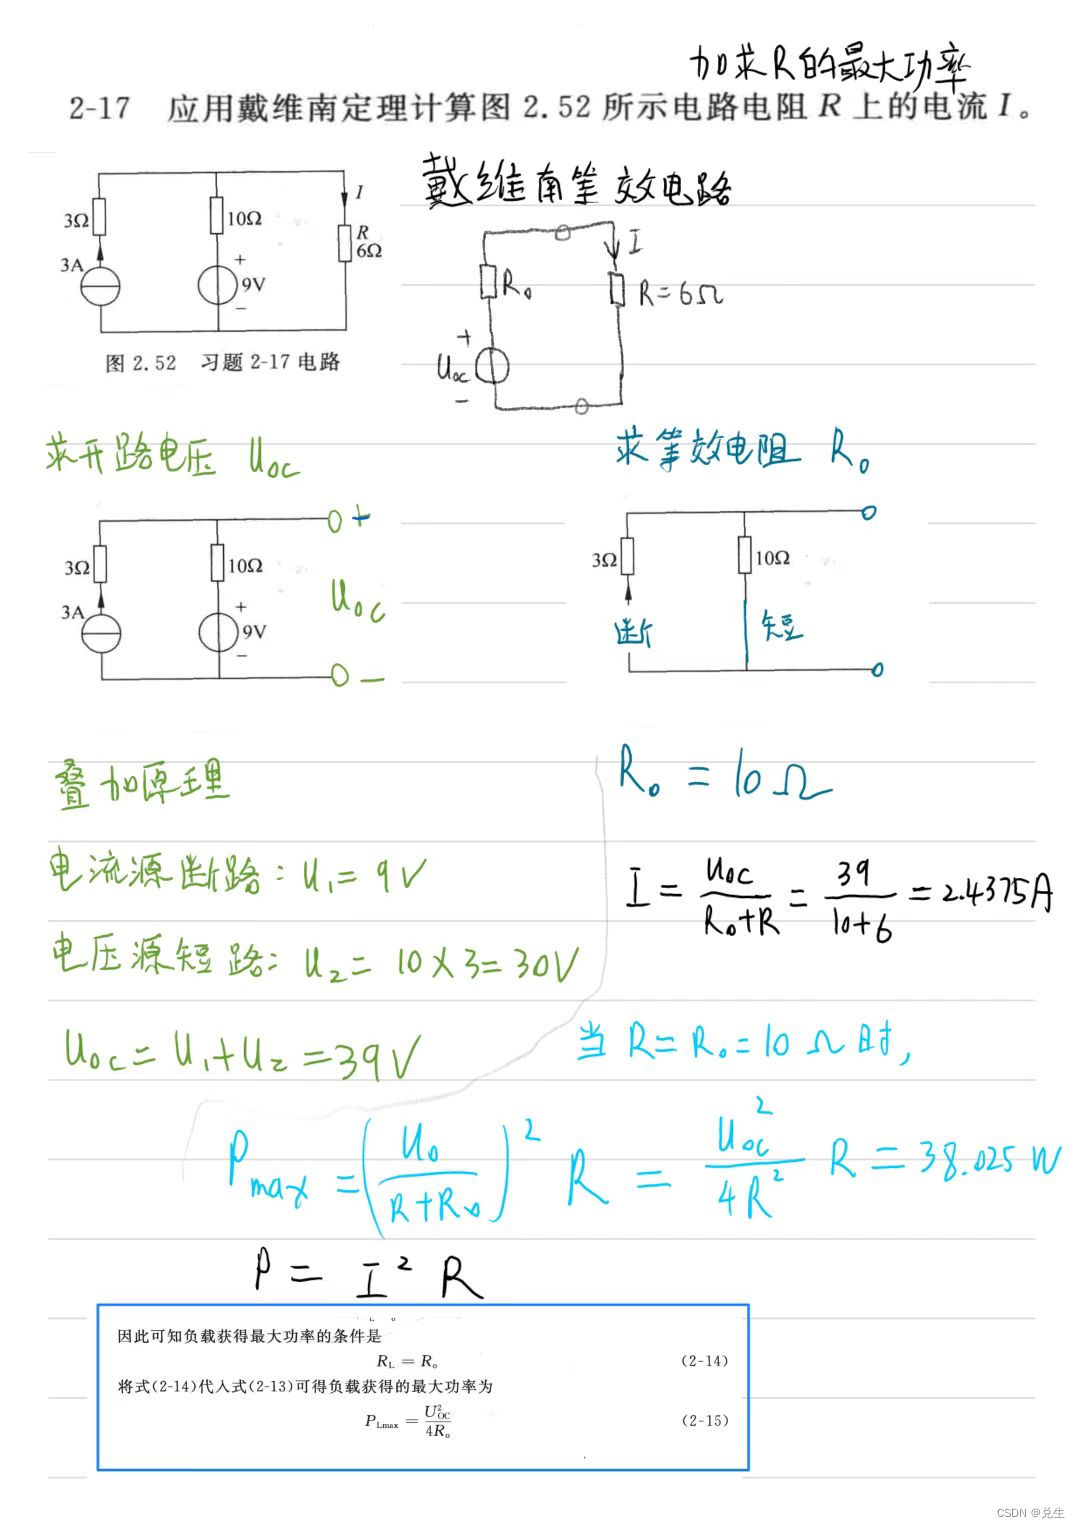 加求R的最大功率
2-17 应用戴维南定理计算图 2.52 所示电路电阻 R 上的电流 I。
戴维南等效电路
3Ω
10Ω
I
R
6Ω
3A
+
9V
−
图 2.52 习题 2-17 电路
I
R₀
R=6Ω
+
Uoc
−
求开路电压 Uoc
求等效电阻 R₀
3Ω
10Ω
3A
+
9V
−
+
Uoc
−
3Ω
10Ω
断
短
叠加原理
电流源断路: U₁= 9V
电压源短路: U₂= 10×3=30V
Uoc=U₁+U₂=39V
R₀ = 10Ω
I = Uoc/(R₀+R) = 39/(10+6) = 2.4375A
当 R=R₀=10Ω时,
Pmax = (U₀/(R+R₀))² R = Uoc²/4R² R = 38.025W
P = I² R
因此可知负载获得最大功率的条件是
R_L = R₀ (2-14)
将式(2-14)代入式(2-13)可得负载获得的最大功率为
P_Lmax = U²_OC/4R₀ (2-15)
CSDN @兑生